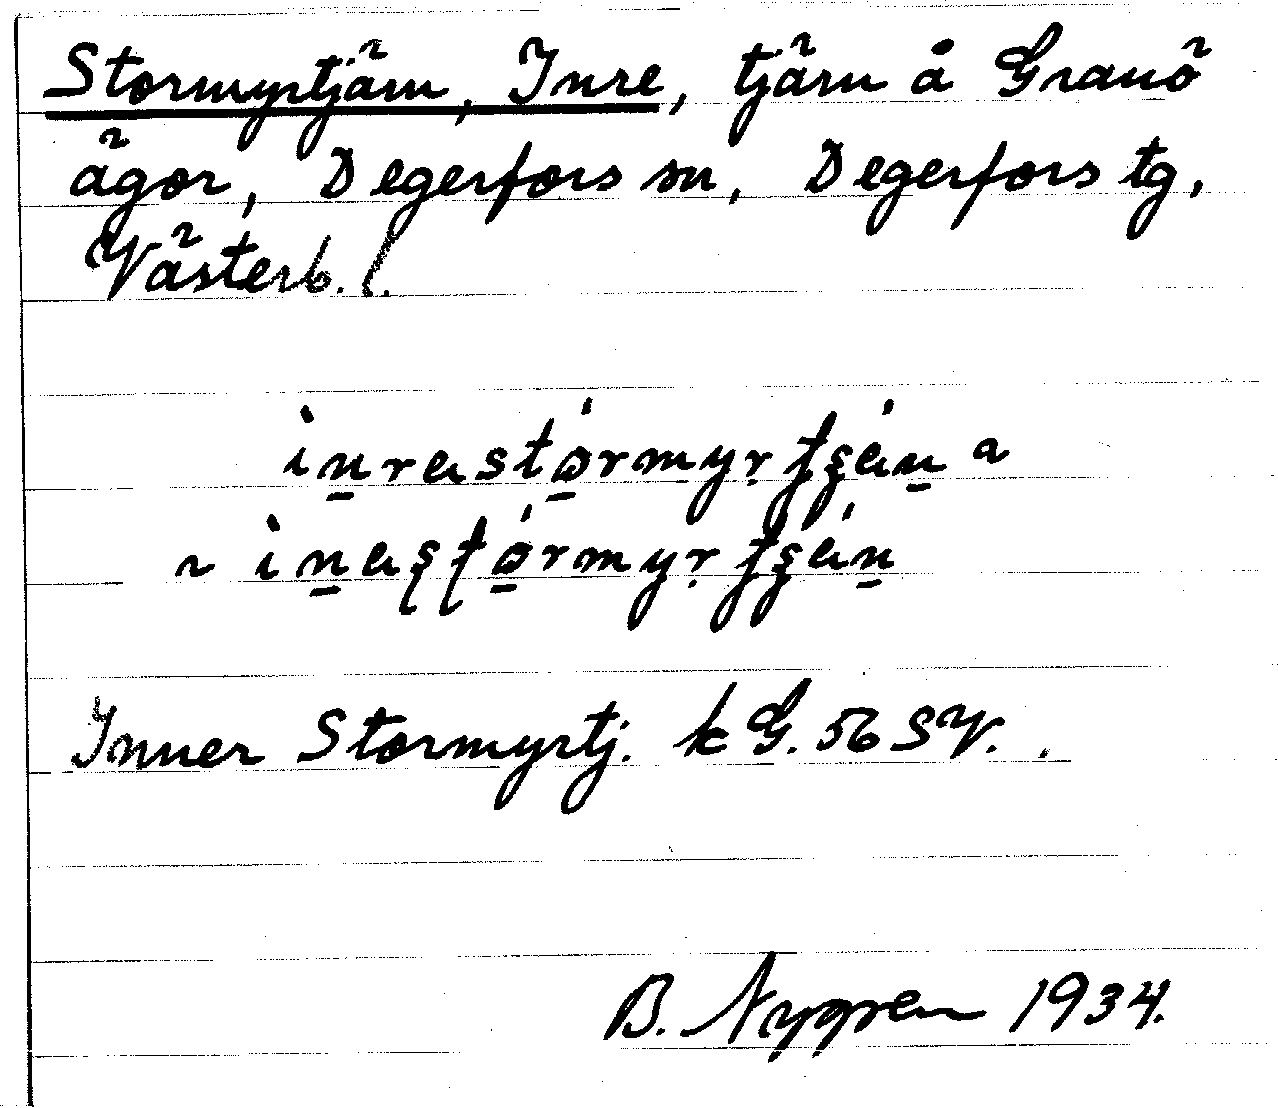 Stormyrtjärn, Inre, tjärn å Granö
ägor, Degerfors sn, Degerfors tg,
Västerb. l.
Inner Stormyrtj. k G. 56 SV.
B. Nygren 1934.